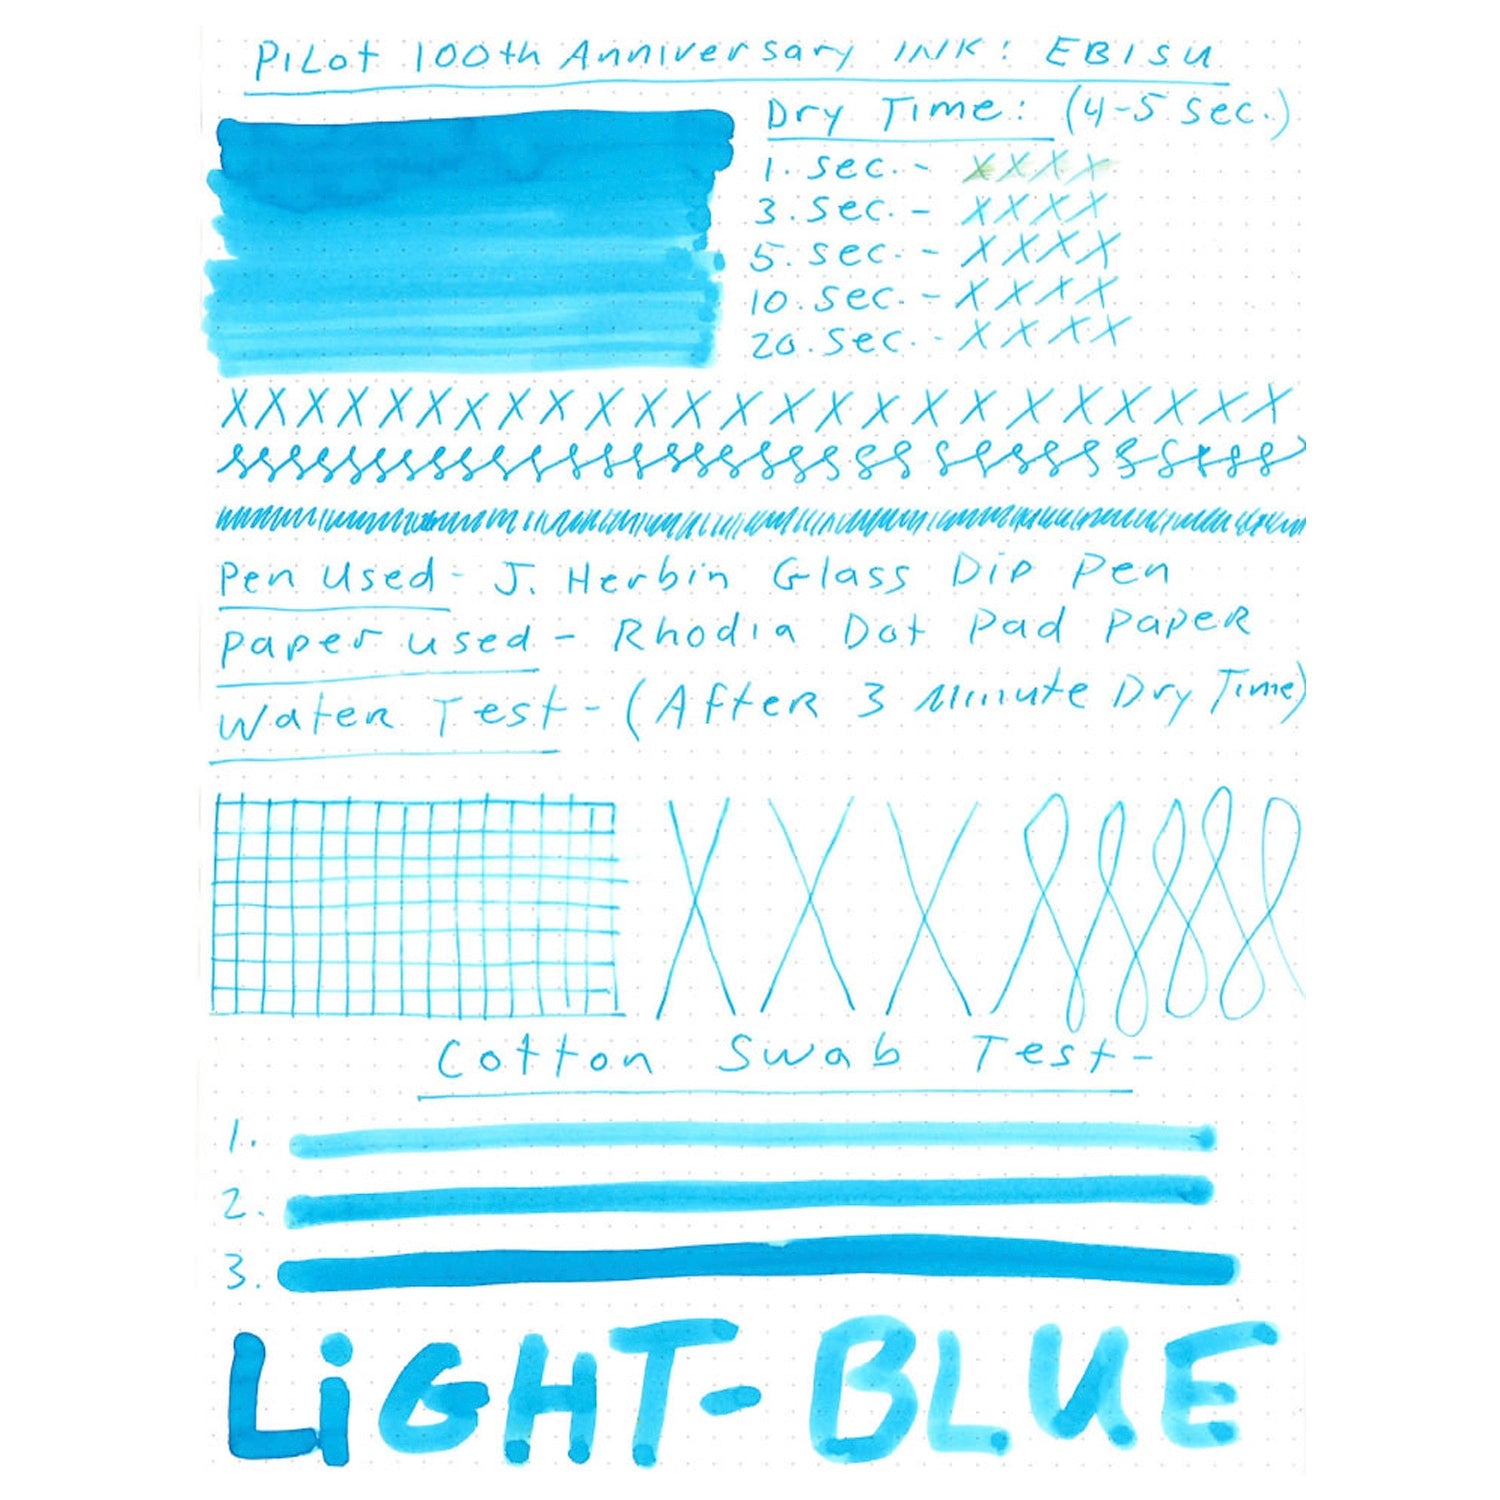 PiLot 100th Anniversary INK: EBISU
Dry Time: (4-5 sec.)
1. sec. - X X X X
3. sec. - X X X X
5. sec. - X X X X
10. sec. - X X X X
20. sec. - X X X X
X X X X X X X X X X X X X X X X X X X X X X X X
Pen Used - J. Herbin Glass Dip Pen
Paper used - Rhodia Dot Pad PapeR
WateR Test - (AfteR 3 Minute Dry Time)
X X X
Cotton Swab Test -
1.
2.
3.
LiGHT-BLUE